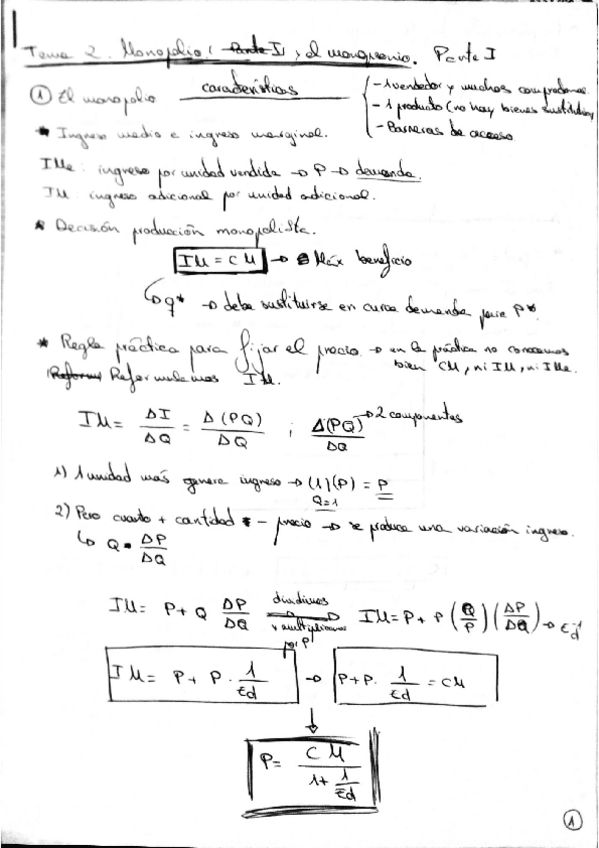 Tema 2. Monopolio (Parte I) y el monopsonio. Parte I
① El monopolio características
- 1 vendedor y muchos compradores
- 1 producto (no hay bienes sustitutivos)
- Barreras de acceso
* Ingreso medio e ingreso marginal.
IMe: ingreso por unidad vendida → P → demanda.
IM: ingreso adicional por unidad adicional.
* Decisión producción monopolista.
IM = CM → Máx beneficio
↳ q* → debe sustituirse en curva demanda para P*.
* Regla práctica para fijar el precio. → en la práctica no conocemos
bien CM, ni IM, ni IMe.
(Reform) Reformulamos IM.
IM = ΔI/ΔQ = Δ(PQ)/ΔQ ; Δ(PQ)/ΔQ → 2 componentes
1) 1 unidad más genera ingreso → (1)(P) = P
Q=1
2) Pero cuanto + cantidad - precio → se produce una variación ingreso.
↳ Q · ΔP/ΔQ
IM = P + Q ΔP/ΔQ dividimos y multiplicamos por P IM = P + P (Q/P) (ΔP/ΔQ) → Ed⁻¹
IM = P + P · 1/Ed → P + P · 1/Ed = CM
P = CM/(1 + 1/Ed)
1